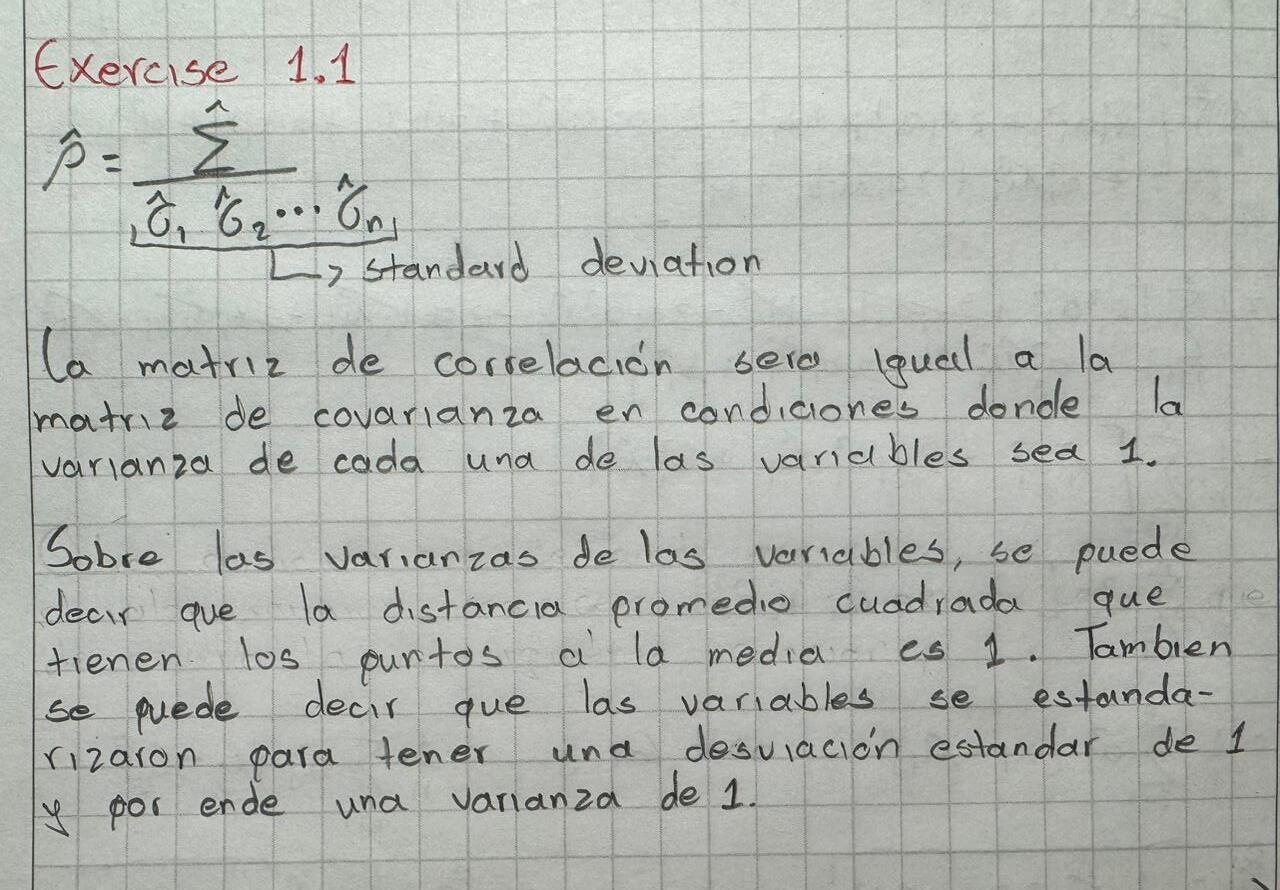 Exercise 1.1
ρ̂ = Σ̂ / σ̂₁ σ̂₂ ... σ̂ₙ
↳ standard deviation
La matriz de correlación sera igual a la
matriz de covarianza en condiciones donde la
varianza de cada una de las variables sea 1.
Sobre las varianzas de las variables, se puede
decir que la distancia promedio cuadrada que
tienen los puntos a la media es 1. Tambien
se puede decir que las variables se estanda-
rizaron para tener una desviación estandar de 1
y por ende una varianza de 1.